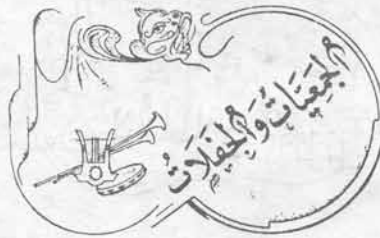 الجمعيَات والحفَلاتُ